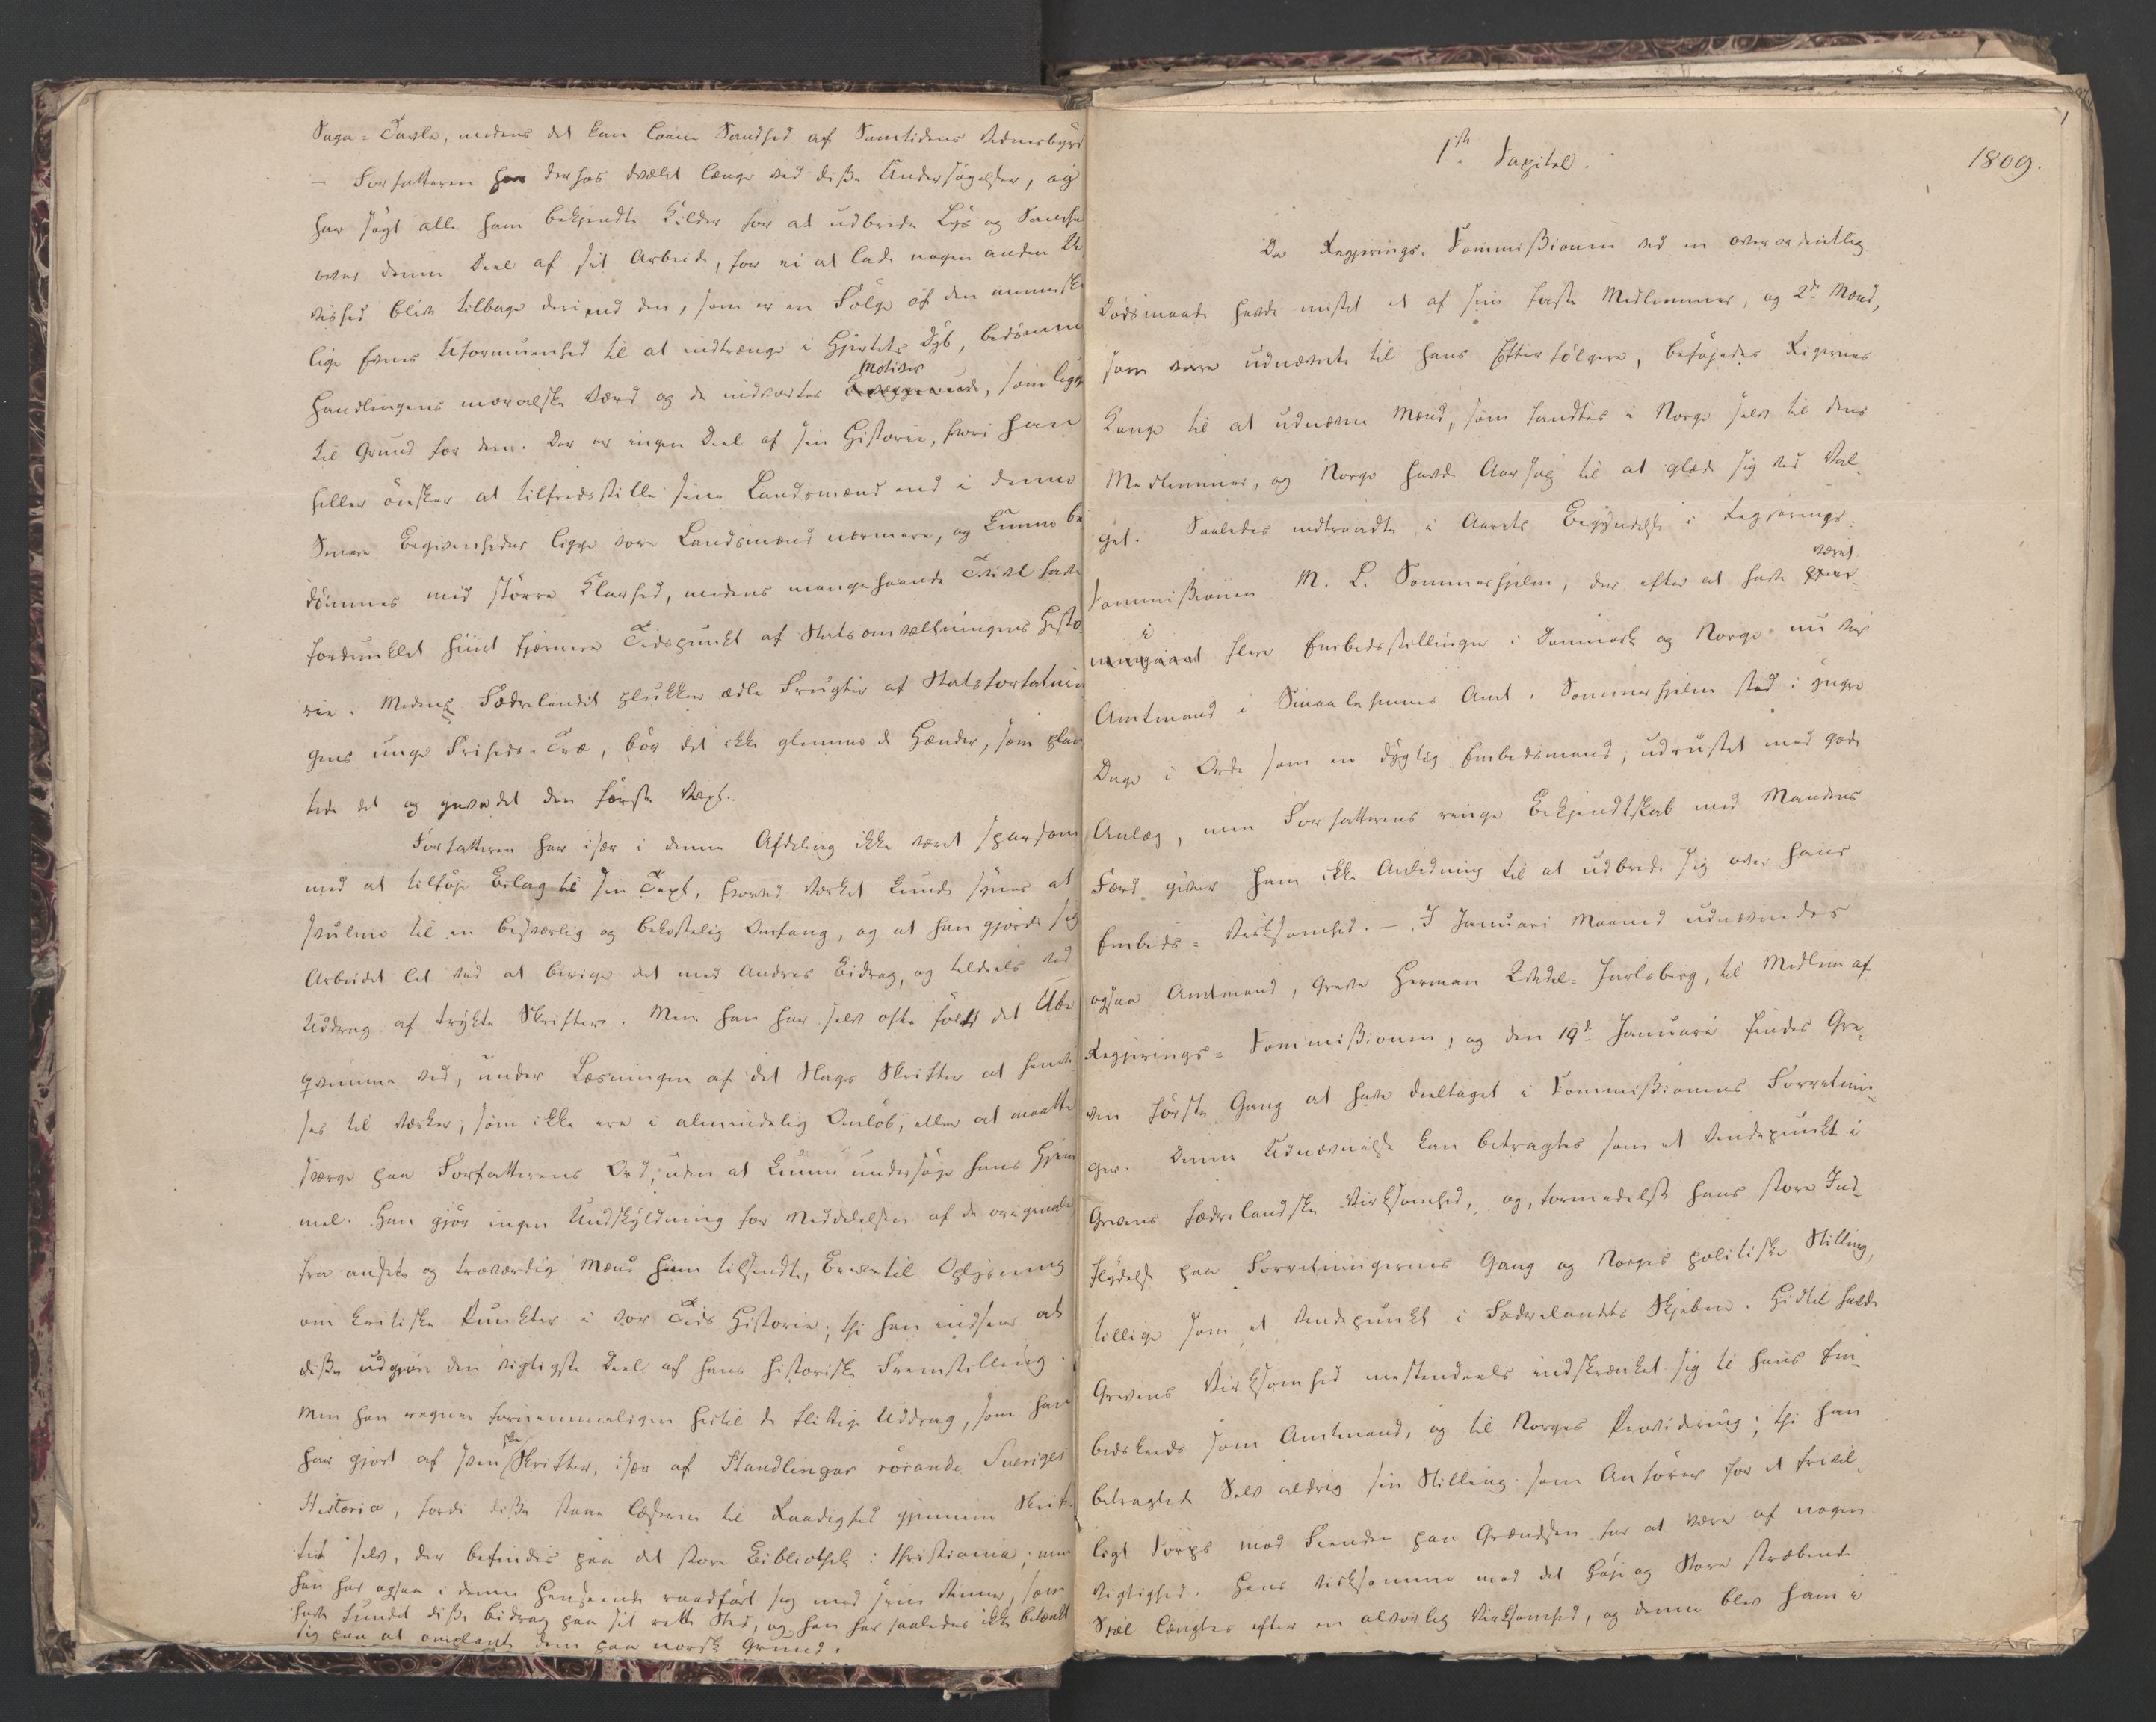 Saga-Tavle, medens det kan laane Sandhed af Samtidens Vidnesbyrd
– Forfatteren har derfor dvælet længe ved disse Undersøgelser, og
har søgt alle ham bekjendte Kilder for at udbrede Lys og Sandhe
over denne Deel af sit Arbeide, for ei at lade nogen anden U
vished blive tilbage deri end den, som er en Følge af den menneske
lige Evnes Uformuenhed til at indtrænge i Hjertets Dyb, bedømme
Handlingens moralske Værd og de indvortes Motiver, som ligge
til Grund for dem. Der er ingen Deel af sin Historie, hvori han
heller ønsker at tilfredsstille sine Landsmænd end i denne
Senere Begivenheder ligge vore Landsmænd nærmere, og kunne be
dømmes med større Klarhed, medens mangehaande Tvivl have
fordunklet hiint fjærnere Tidspunkt af Statsomvæltningens Histo-
rie. Medens Fædrelandet plukker ædle Frugter af Statsforfatnin
gens unge Friheds-Træ, bør det ikke glemme de Hænder, som plan
tede det og gave det den første Væxt.
Forfatteren har især i denne Afdeling ikke været sparsom
med at tilføje Bilag til sin Text, hvorved Værket kunde synes at
svulme til en besværlig og bekostelig Omfang, og at han gjorde sig
Arbeidet let ved at berige det med Andres Bidrag, og tildeels ved
Uddrag af trykte Skrifter. Men han har selv ofte følt det Ube
qvemme ved, under Læsningen af det Slags Skrifter at henvi
ses til Værker, som ikke ere i almindelig Omløb, eller at maatte
sværge paa Forfatterens Ord, uden at kunne undersøge hans Hjem
mel. Han gjør ingen Undskyldning for Meddelelsen af de originale
fra ansete og troværdige Mænd ham tilsendte, Breve til Oplysning
om kritiske Punkter i vor Tids Historie; thi han indseer at
disse udgjøre den vigtigste Deel af hans historiske Fremstilling.
Men han regner fornemmeligen hertil de flittige Uddrag, som han
har gjort af svenske Skrifter, især af Handlingar rörande Sveriges
Historia, fordi disse staae Læseren til Raadighed gjennem Skrif
tet selv, der befindes paa det store Bibliothek i Christiania; men
han har ogsaa i denne Henseende raadført sig med sine Venner, som
have fundet disse Bidrag paa sit rette Sted, og han har saaledes ikke betænkt
sig paa at omplante dem paa norsk Grund.
1ste Capitel.
1809.
Da Regjerings-Commissionen ved en overordentlig
Dødsmaade havde mistet et af sine første Medlemmer, og 2de Mænd,
som vare udnævnte til hans Efterfølgere, beføjedes Rigernes
Konge til at udnævne Mænd, som fandtes i Norge selv til dens
Medlemmer, og Norge havde Aarsag til at glæde sig ved Val-
get. Saaledes indtraadte i Aarets Begyndelse i Regjerings-
Commissionen M. L. Sommerhjelm, der efter at have været
i flere Embedsstillinger i Danmark og Norge nu var
Amtmand i Smaalehnenes Amt. Sommerhjelm stod i yngre
Dage i Orde som en dygtig Embedsmand, udrustet med gode
Anlæg, men Forfatterens ringe Bekjendtskab med Mandens
Færd giver ham ikke Anledning til at udbrede sig over hans
Embeds-Virksomhed. – I Januari Maaned udnævnedes
ogsaa Amtmand, Greve Herman Wedel-Jarlsberg, til Medlem af
Regjerings-Commissionen, og den 19de Januari findes Gre-
ven første Gang at have deeltaget i Commissionens Forretnin-
ger. Denne Udnævnelse kan betragtes som et Vendepunkt i
Grevens fædrelandske Virksomhed, og, formedelst hans store Ind-
flydelse paa Forretningernes Gang og Norges politiske Stilling,
tillige som et Vendepunkt i Fædrelandets Skjebne. Hidtil havde
Grevens Virksomhed mestendeels indskrænket sig til hans Em-
bedskreds som Amtmand, og til Norges Providering; thi han
betragtede Selv aldrig sin Stilling som Anfører for et frivil-
ligt Corps mod Fienden paa Grændsen for at være af nogen
Vigtighed. Hans virksomme mod det Høje og Store stræbende
Sjæl længtes efter en alvorlig Virksomhed, og denne blev ham i